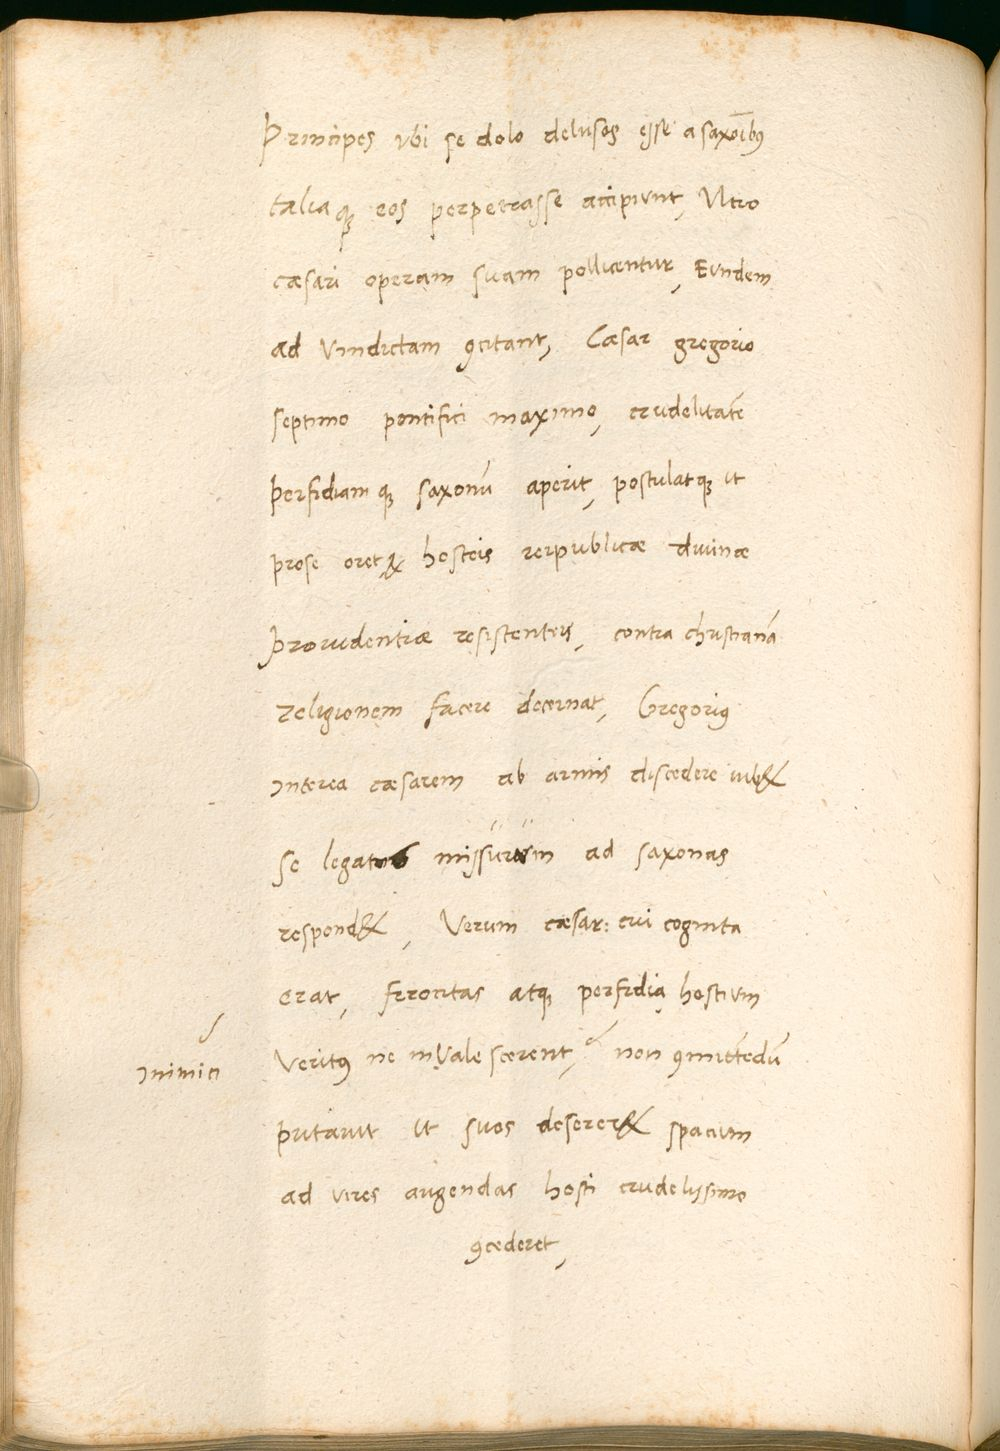 Principes vbi se dolo delusos esse a saxoībꝰ
talia qꝫ eos perpetrasse accipiunt, Vltro
cæsari operam suam pollicentur, Eundem
ad Vindictam ꝯcitant, Cæsar gregorio
septimo pontifici maximo, crudelitatē
perfidiam qꝫ saxonū aperit, postulatqꝫ vt
pro se oret, & hosteis reipublicæ diuinæ
Prouidentiæ resistenteis, contra christianā
religionem facere decernat, Gregoriꝰ
interea cæsarem ab armis discedere iub&
se legatos missurum ad saxonas
respond&, Verum cæsar: cui cognita
erat, ferocitas atqꝫ perfidia hostium
Veritꝰ ne inualescerent, non ꝯmittēdū
inimici
putauit vt suos deserer& spacium
ad vires augendas hosti crudelissimo
ꝯcederet,